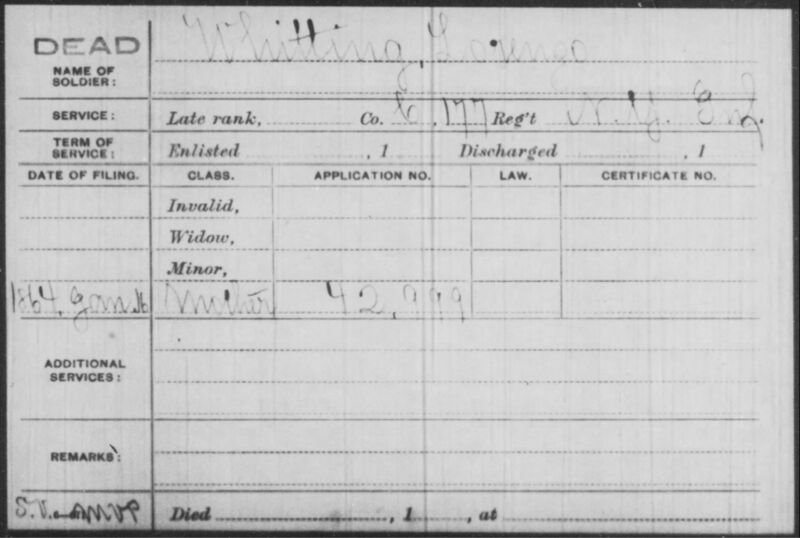 DEAD Whitting, Lorenzo
NAME OF
SOLDIER:
SERVICE: Late rank, Co. C, 177 Reg't N.Y. Inf.
TERM OF
SERVICE: Enlisted , 1 Discharged , 1
DATE OF FILING. CLASS. APPLICATION NO. LAW. CERTIFICATE NO.
Invalid,
Widow,
Minor,
1864, Jan. 16 Mother 42,999
ADDITIONAL
SERVICES:
REMARKS:
Died , 1 , at